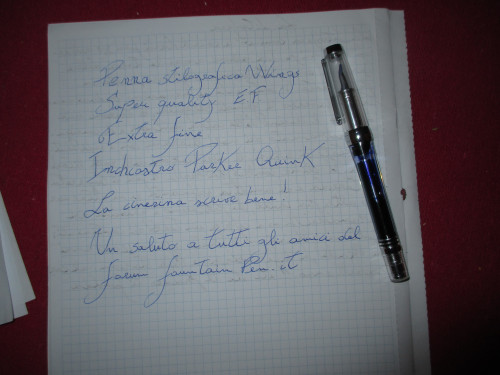 Penna stilografica Wings
Super quality EF
Extra fine
Inchiostro Parker Quink
La cinesina scrive bene!
Un saluto a tutti gli amici del
forum fountain Pen.it